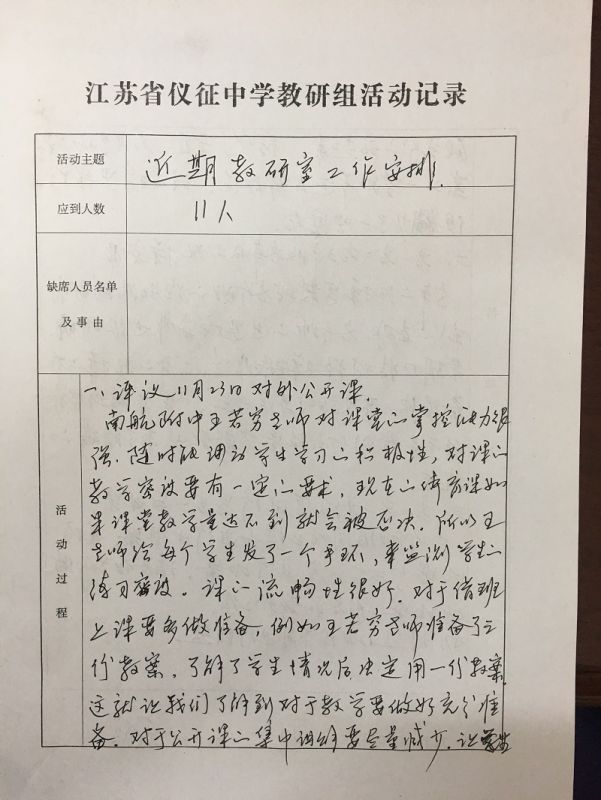 江苏省仪征中学教研组活动记录
活动主题
近期教研室工作安排.
应到人数
11人
缺席人员名单
及事由
活动过程
一、评议11月23日对外公开课.
南航附中王若穷老师对课堂的掌控能力很
强.随时能调动学生学习的积极性,对课的
教学密度要有一定的要求.现在的体育课如
果课堂教学量达不到就会被否决.所以王
老师给每个学生发了一个手环,来监测学生的
练习密度.课的流畅性很好.对于借班
上课要多做准备,例如王若穷老师准备了三
份教案.了解了学生情况后决定用一份教案.
这就让我们了解到对于教学要做好充分准
备.对于公开课的集中调练要尽量减少.让学生